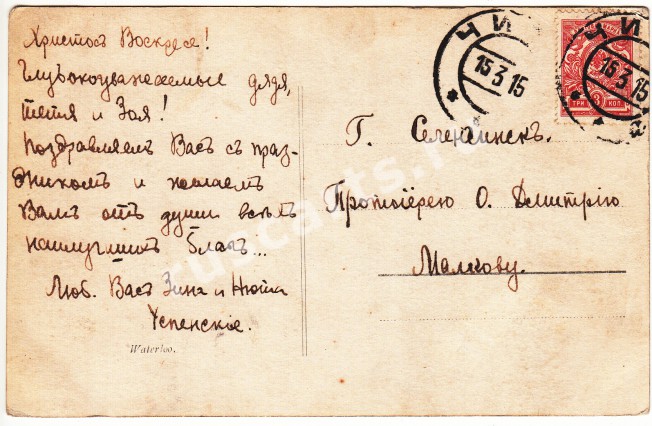 Христосъ Воскресе!
Глубокоуважаемые дядя,
тетя и Зоя!
Поздравляемъ Васъ съ праз-
дникомъ и желаемъ
Вамъ отъ души всѣхъ
наилучшихъ благъ...
Люб. Васъ Зина и Нюта
Успенскіе.
Waterloo.
ЧИ
15 3 15
ЧИ
15 3 15
ТРИ 3 КОП
Г. Селенгинскъ.
Протоіерею О. Дмитрію
Малкову.